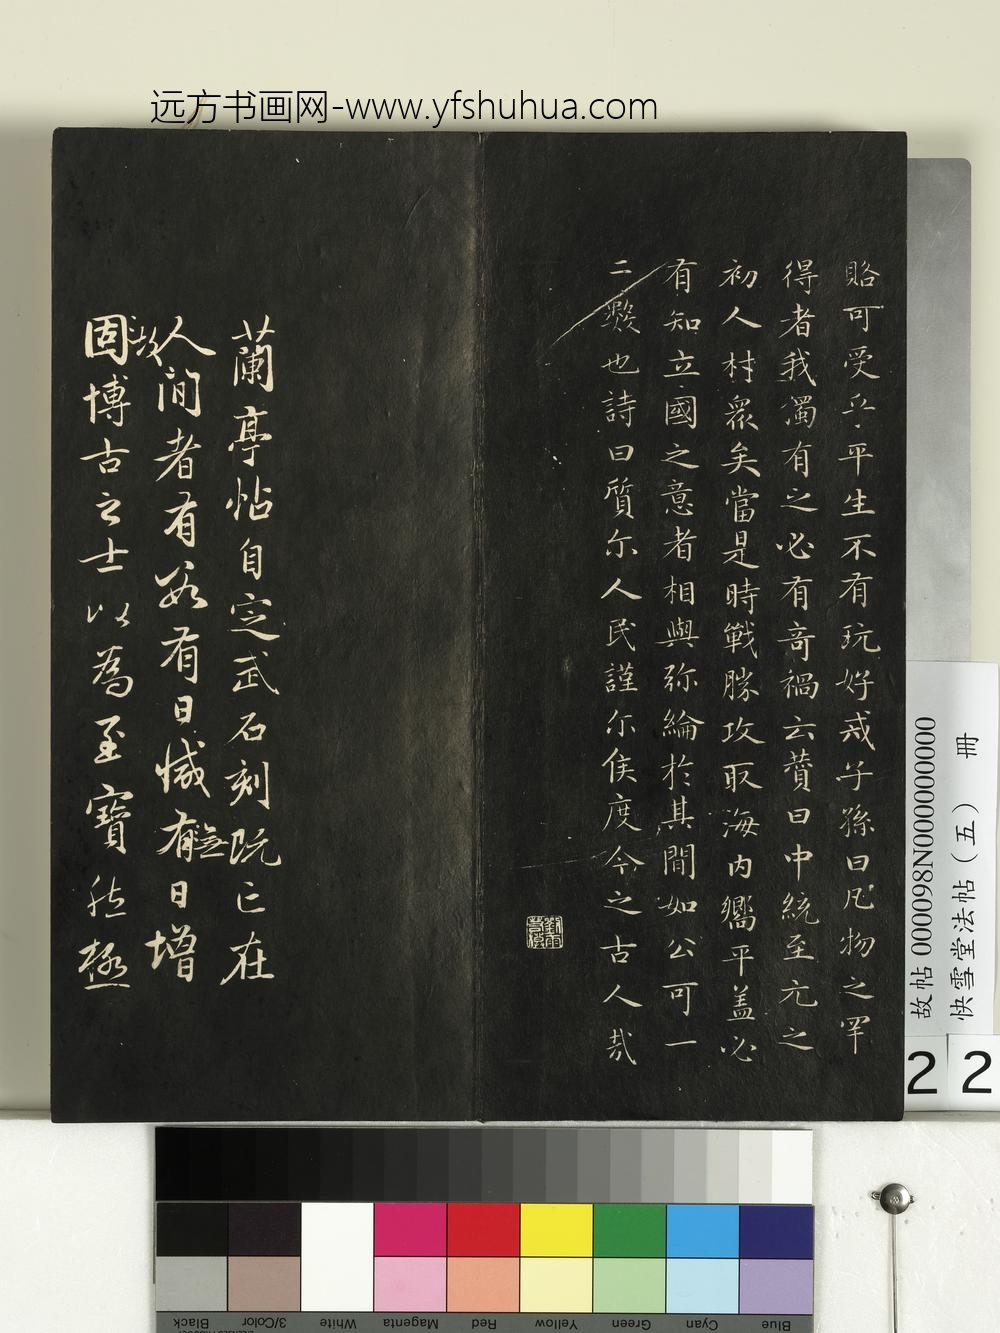 远方书画网-www.yfshuhua.com
賂可受乎平生不有玩好戒子孫曰凡物之罕
得者我濁有之必有奇禍云贊曰中統至元之
初人材眾矣當是時戰勝攻取海内嚮平盖必
有知立國之意者相與弥綸於其間如公可一
二數也詩曰質尔人民謹尔侯度今之古人哉
蘭亭帖自定武石刻既亡在
人間者有數有日憾有日增
故
無
固博古之士以為至寶然極
故帖000098N000000000
快雪堂法帖（五） 冊
2
2
Black
3/Color
White
Magenta
Red
Yellow
Green
Cyan
Blue